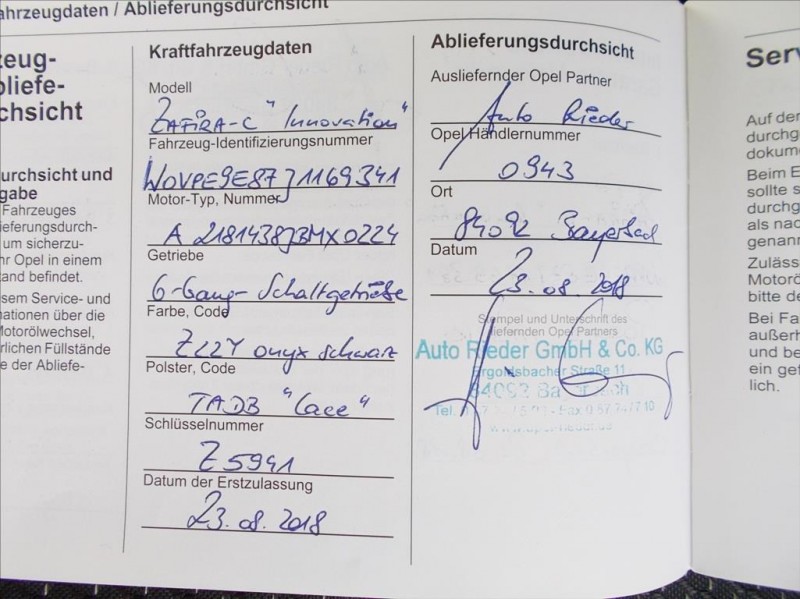 ahrzeugdaten / Ablieferungsdurchsicht
zeug-
bliefe-
chsicht
urchsicht und
gabe
Fahrzeuges
ieferungsdurch-
um sicherzu-
hr Opel in einem
and befindet.
sem Service- und
mationen über die
Motorölwechsel,
rlichen Füllstände
e der Abliefe-
Kraftfahrzeugdaten
Modell
ZAFIRA-C "Innovation"
Fahrzeug-Identifizierungsnummer
W0VPE9E87J1169341
Motor-Typ, Nummer
A 21814387BMX0224
Getriebe
6-Gang-Schaltgetriebe
Farbe, Code
Z22Y onyx schwarz
Polster, Code
TADB "Lace"
Schlüsselnummer
Z5941
Datum der Erstzulassung
23.08.2018
Ablieferungsdurchsicht
Ausliefernder Opel Partner
Auto Rieder
Opel Händlernummer
0943
Ort
84092 Bayerbach
Datum
23.08.2018
Stempel und Unterschrift des
liefernden Opel Partners
Auto Rieder GmbH & Co. KG
Ergoldsbacher Straße 11
84092 Bayerbach
Serv
Auf der
durchg
dokum
Beim E
sollte s
durchg
als nac
genann
Zuläss
Motorö
bitte de
Bei Fa
außerh
und be
ein gef
lich.